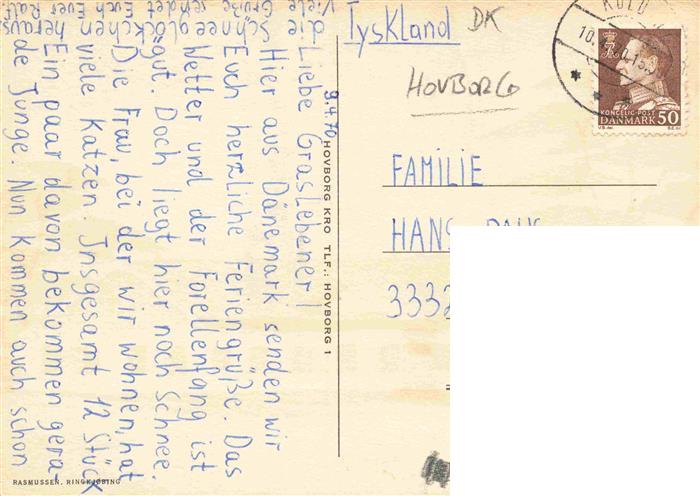 9.4.70
Liebe Graslebener!
Hier aus Dänemark senden wir
Euch herzliche Feriengrüße. Das
Wetter und der Forellenfang ist
gut. Doch liegt hier noch Schnee.
Die Frau, bei der wir wohnen, hat
viele Katzen. Insgesamt 12 Stück
Ein paar davon bekommen gera-
de Junge. Nun kommen auch schon
die Schneeglöckchen heraus
Viele Grüße sendet Euch Euer Ralf
HOVBORG KRO TLF.: HOVBORG 1
RASMUSSEN, RINGKJØBING
Tyskland DK
HOVBORG
10.
KONGELIG POST
DANMARK 50
FAMILIE
HANS
3332